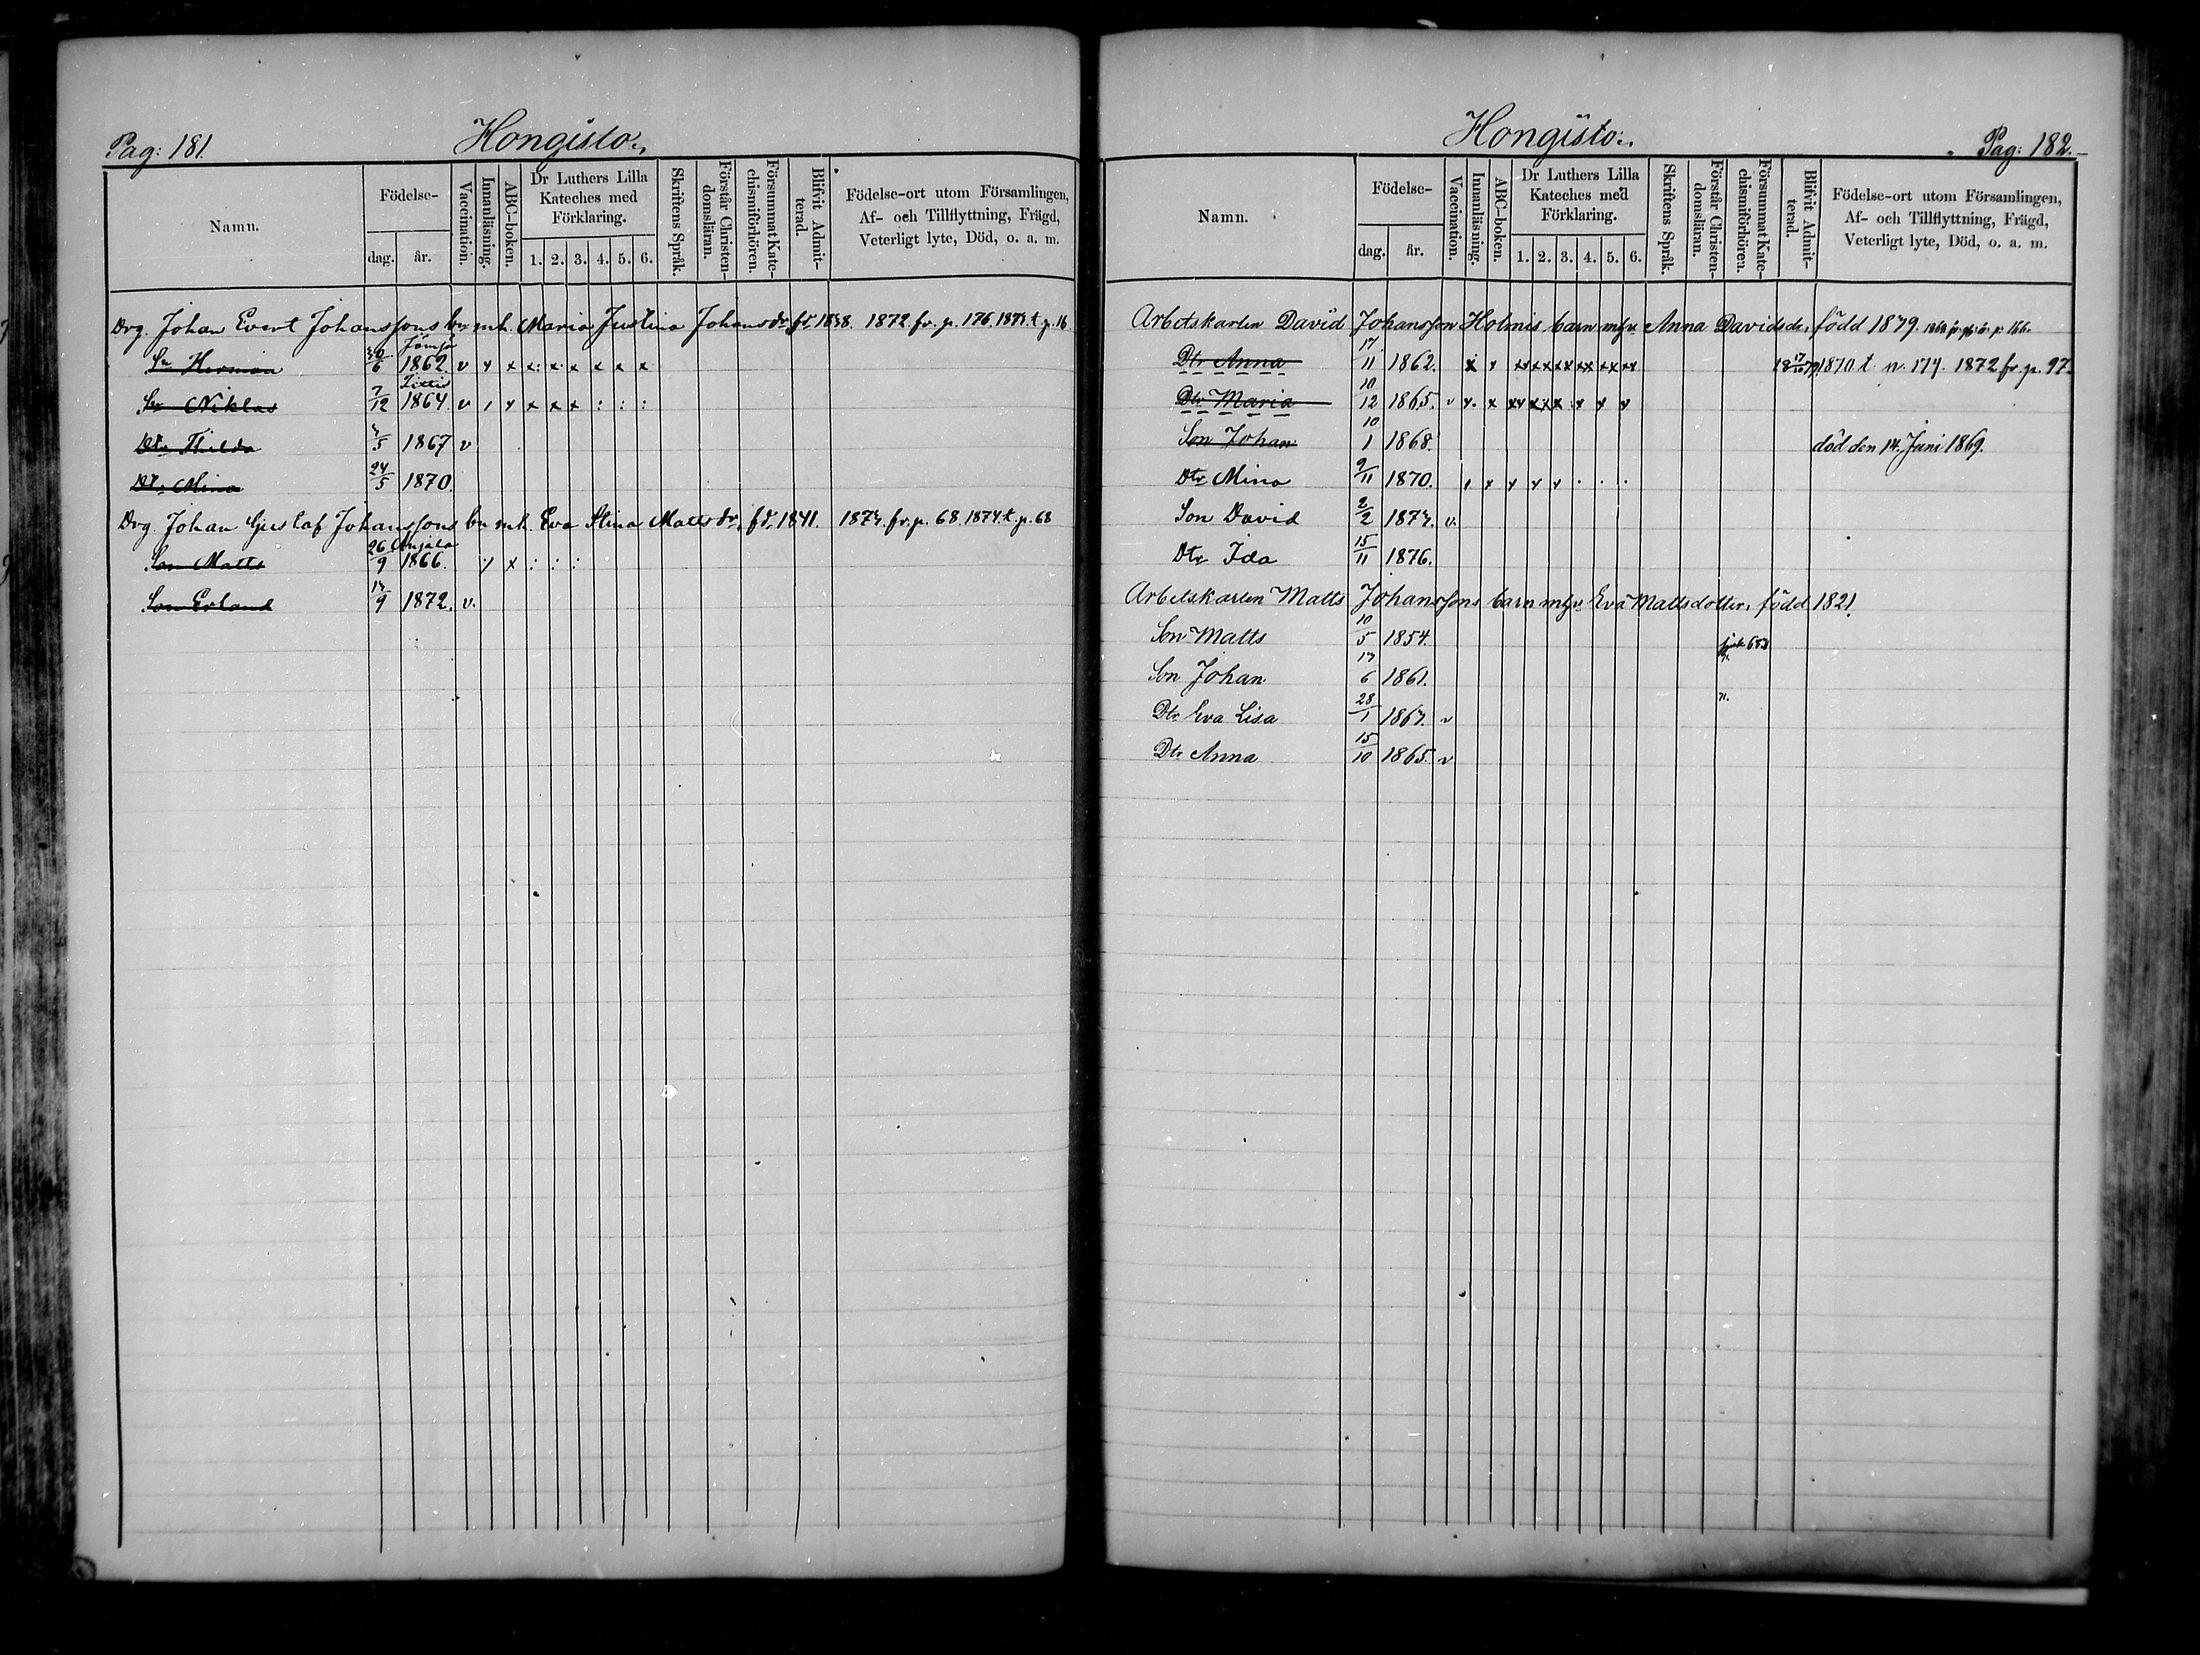 Pag: 181.
Hongisto:
Namn.
Födelse-
dag.
år.
Vaccination.
Innanläsning.
ABC-boken.
Dr Luthers Lilla
Kateches med
Förklaring.
1. 2. 3. 4. 5. 6.
Skriftens Språk.
Förstår Christen-
domsläran.
Försummat Kate-
chismiförhören.
Blifvit Admit-
terad.
Födelse-ort utom Församlingen,
Af- och Tillflyttning, Frägd,
Veterligt lyte, Död, o. a. m.
Drg. Johan Evert Johanssons bn mh. Maria Justina Johansdr, fd. 1838. 1872 fr. p. 176. 1873. t. p. 16
Sn Herman 6 1862 v x x x x x x x x
Sn Niklas 7/12 1864 v x x x x : : :
Dtr Thilda 5 1867 v
Dtr Mina 24/5 1870.
Drg. Johan Gustaf Johanssons bn mh. Eva Stina Mattsdr, fd. 1841. 1873. fr. p. 68. 1874. t. p. 68
Anjala
Son Matts 26/9 1866. x : : :
Son Erland 9 1872. v.
Hongisto:
Pag: 182.
Namn.
Födelse-
dag.
år.
Vaccination.
Innanläsning.
ABC-boken.
Dr Luthers Lilla
Kateches med
Förklaring.
1. 2. 3. 4. 5. 6.
Skriftens Språk.
Förstår Christen-
domsläran.
Försummat Kate-
chismiförhören.
Blifvit Admit-
terad.
Födelse-ort utom Församlingen,
Af- och Tillflyttning, Frägd,
Veterligt lyte, Död, o. a. m.
Arbetskarlen David Johansson Holmis barn mh Anna Davidsdr, född
Dtr Anna 17/11 1862. 1870 t. p. 174. 1872 fr. p. 97.
Dtr Maria 10/12 1865. v
Son Johan 10/1 1868. död den 14. Juni 1869.
Dtr Mina 9/11 1870.
Son David 2/2 1873. v.
Dtr Ida 15/11 1876.
Arbetskarlen Matts Johanssons barn mh Eva Mattsdotter, född 1821.
Son Matts 10/5 1854.
Son Johan 6 1861.
Dtr Eva Lisa 28/1 1863. v
Dtr Anna 15/10 1865. v